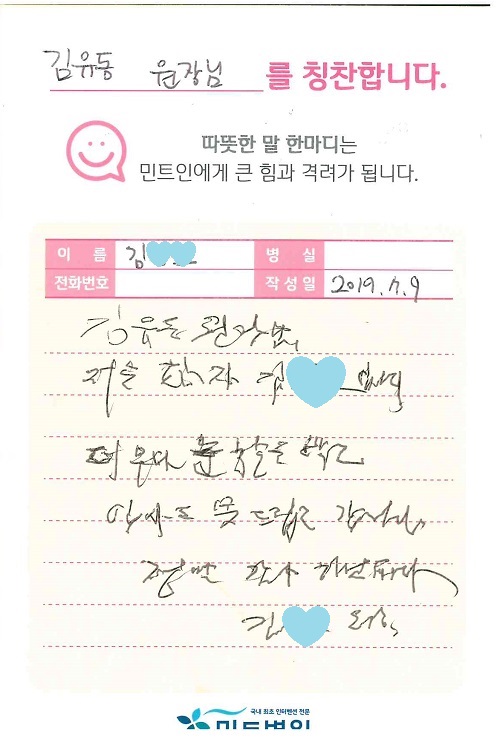 김유동 원장님 를 칭찬합니다.
따뜻한 말 한마디는
민트인에게 큰 힘과 격려가 됩니다.
이 름 김 병 실
전화번호 작성일 2019.7.9
김유동 원장님,
저는 환자 김 입니다
너무나 큰 을 받고
인사도 못 드리고
정말 감사
김
국내 최초 인터벤션 전문
민트병원